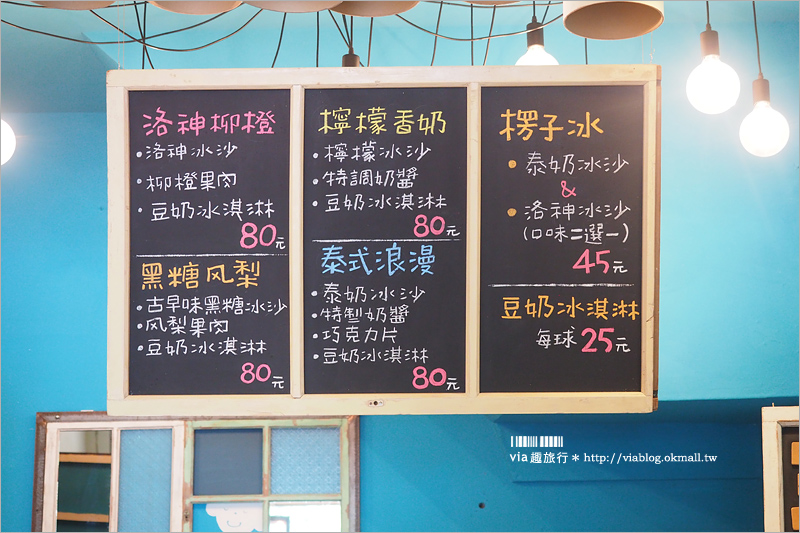 洛神柳橙
•洛神冰沙
•柳橙果肉
•豆奶冰淇淋
80元
黑糖风梨
•古早味黑糖冰沙
•风梨果肉
•豆奶冰淇淋
80元
檸檬香奶
•檸檬冰沙
•特調奶醬
•豆奶冰淇淋
80元
泰式浪漫
•泰奶冰沙
•特製奶醬
•巧克力片
•豆奶冰淇淋
80元
楞子冰
•泰奶冰沙
&
•洛神冰沙
(口味二選一)
45元
豆奶冰淇淋
每球25元
via趣旅行＊http://viablog.okmall.tw